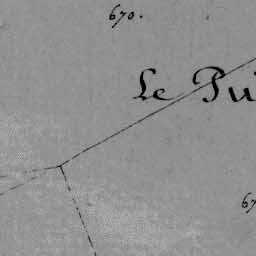 670.
Le Pui
67